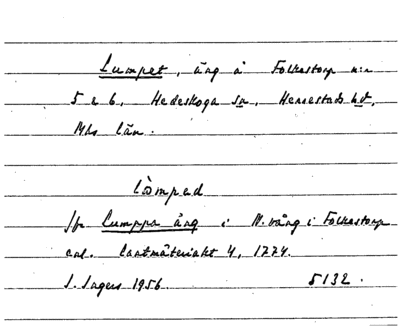 Lumpet, äng å Folkestorp n:r
5 & 6, Hedeskoga sn, Herrestads hd,
Mhs län.
lòmped
Lumppa äng i N. vång i Folkestorp
enl. lantmäteriakt 4, 1774.
S. Ingers 1956. 5132.